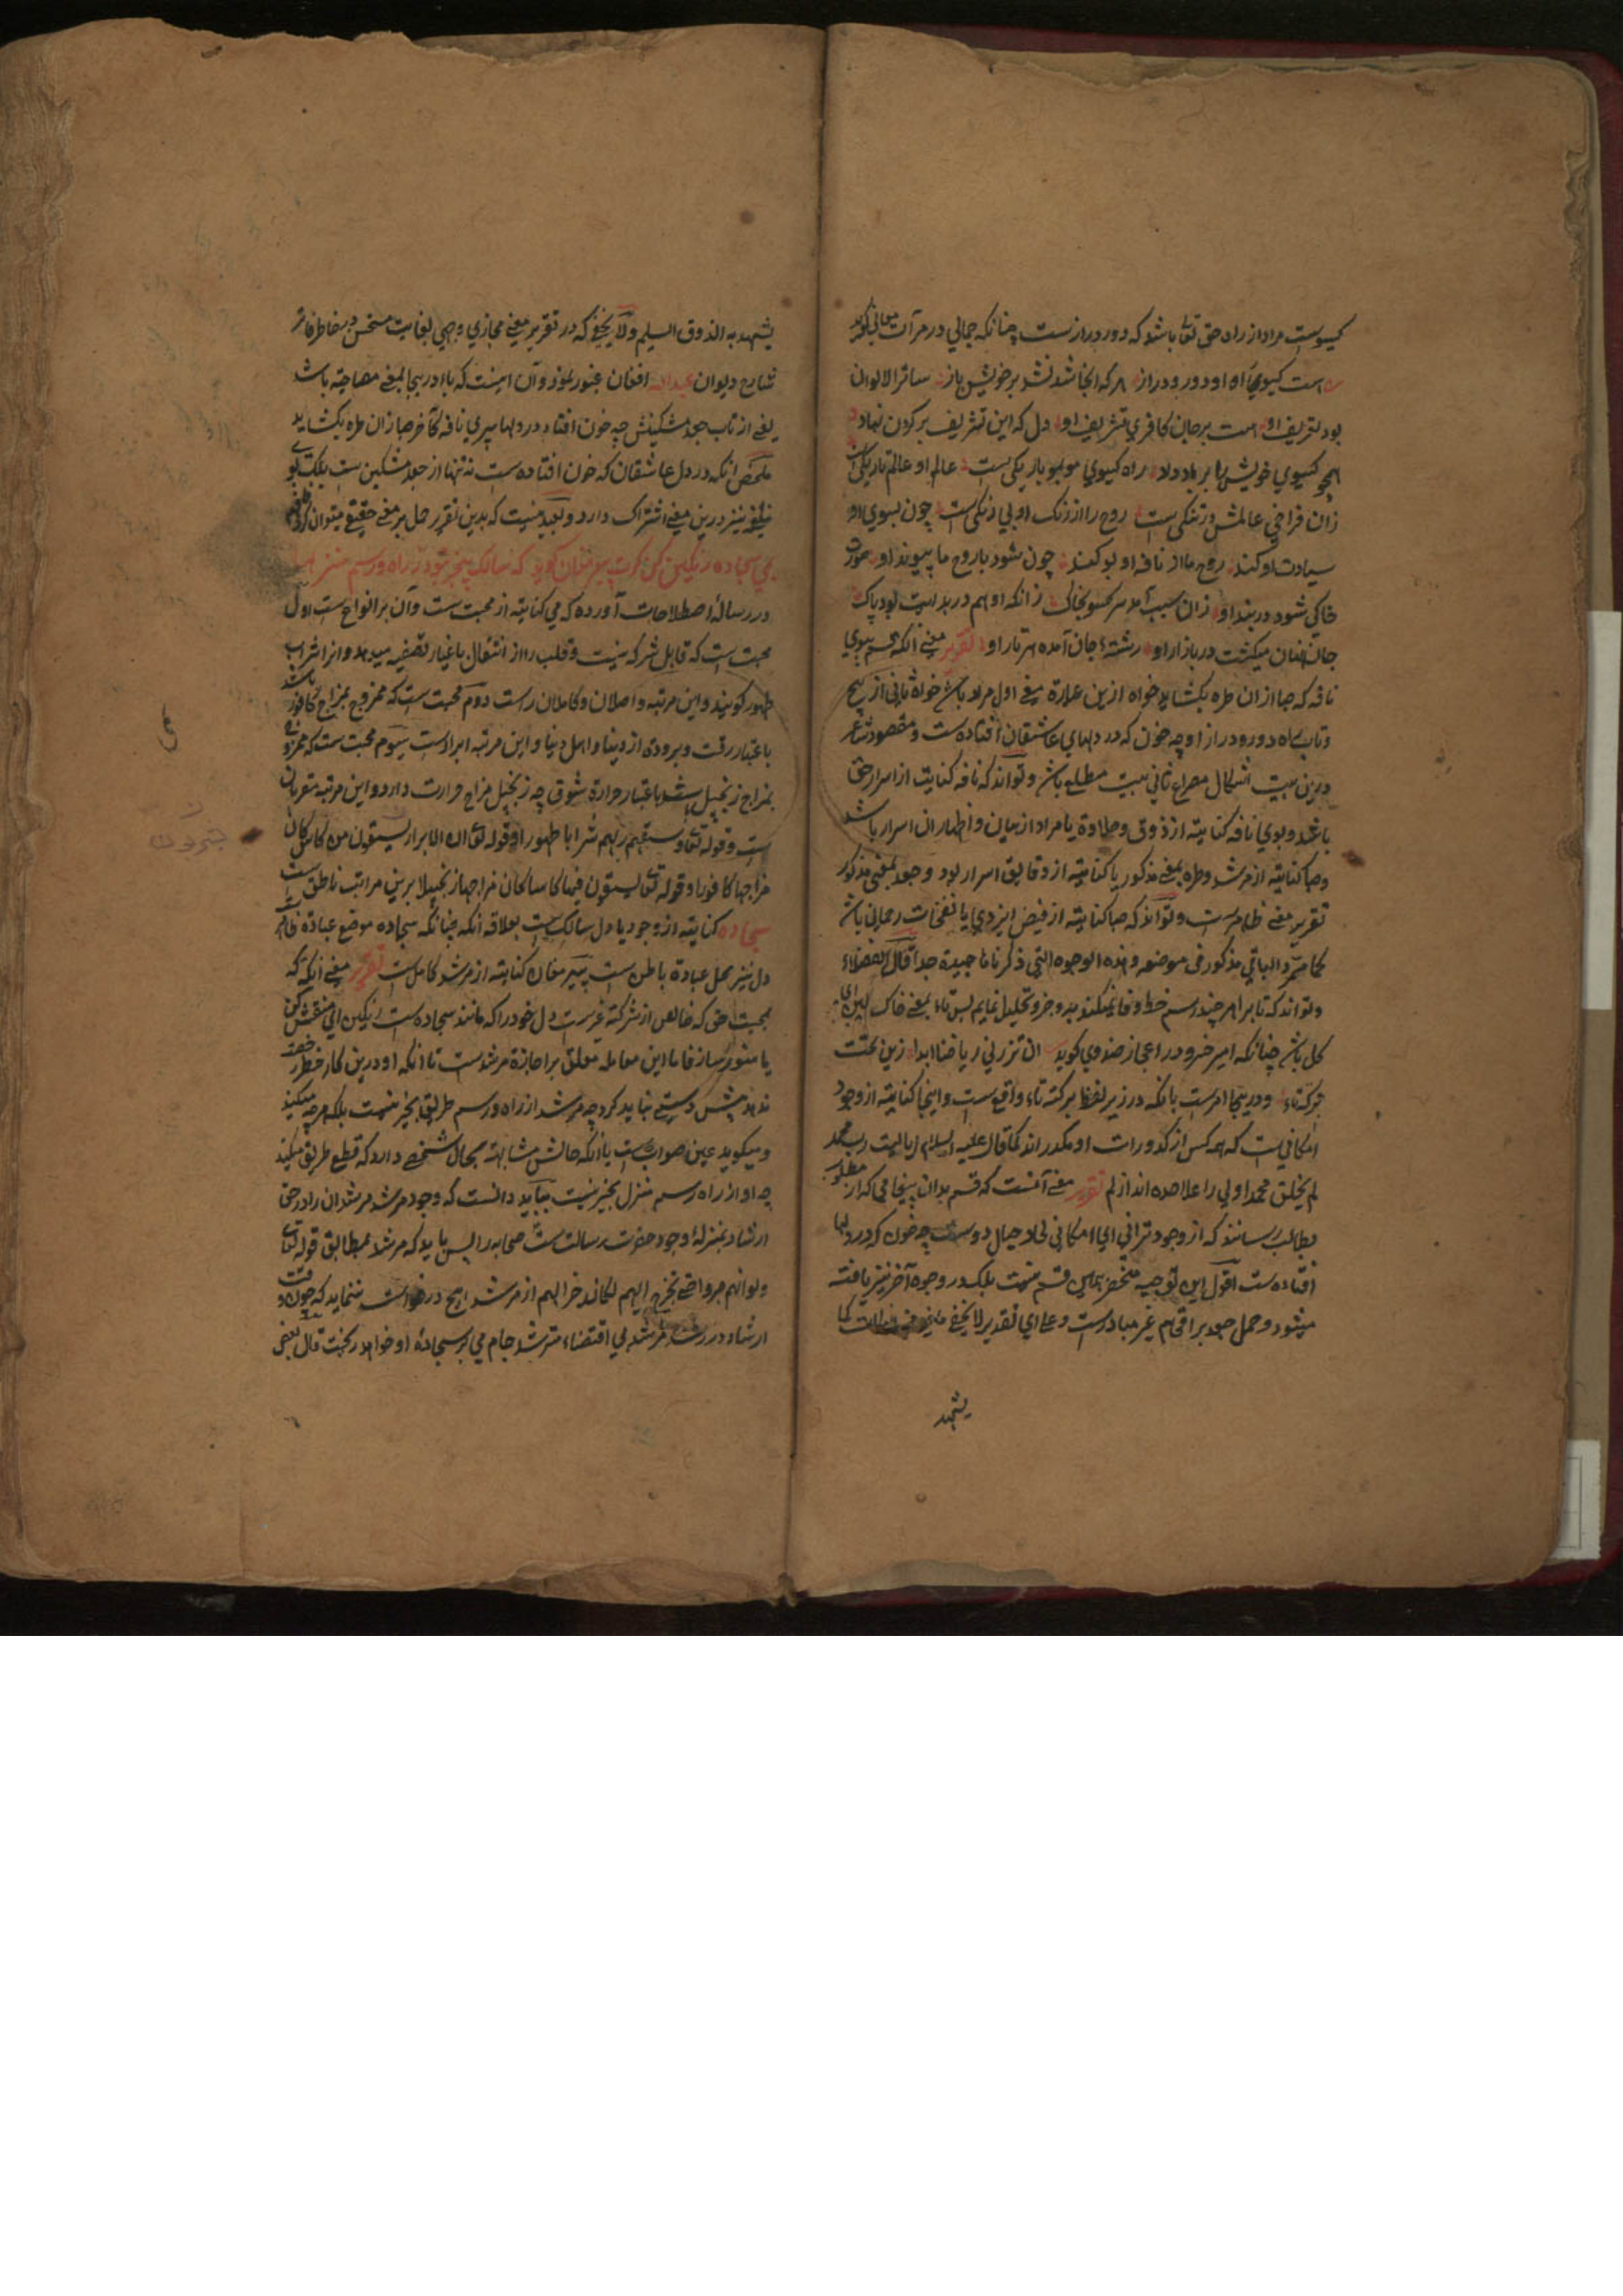 گیسوست مراد از راه حق تعالی باشد که دور دراز ست چنانکه جمالی در مرآت معانی گوید
هست گیسوی راه او دور و دراز هر که اینجا شد نشد بر خویش باز ساترا لالوان
بود تشریف او هست بر جان کافری تشریف او دل که این تشریف بر گردن نهاد
همچو گیسوی خویش را بر باد داد راه گیسوی مو بمو باریکی ست عالم او عالم تاریکی ست
زان فراخی عالمش در تنگی ست روح را از زنگ او بی زنگی ست چون بسوی او
سیادت او کند روح ما از نافه او بو کند چون شود با روح ما پیوند او
خاکی شود در بند او زان سبب آمد سر گیسو بخاک زانکه او هم در بدایت بود پاک
جان جهان میکشت در بازار او رشتهٔ جان آمده هر تار او تقریر معنی آنکه قسم ببوی
نافه که صبا ازان طره بکشاید خواه ازین عبارة معنی اول مراد باشد خواه ثانی از پیچ
و تاب راه دور و دراز او چه خون که در دلهای عاشقان افتاده ست و مقصود شاعر
درین بیت اشکال مصراع ثانی بیت مطلع باشد و تواند که نافه کنایت از اسرار حق
باشد و بوی نافه کنایتة از ذوق و حلاوة یا مراد از بیان و اظهار ان اسرار باشد
و صبا کنایتة از مرشد و طره بمعنی مذکور یا کنایتة از دقایق اسرار بود و جعد بمعنی مذکور
تقریر معنی ظاهرست و تواند که صبا کنایتة از فیض ایزدی یا نفخات رحمانی باشد
کما مر و الباقی مذکور فی موضعه و هذه الوجوه التی ذکرناها جیدة جدا قال الفضلاء
و تواند که تا بر امر چند رسم خط وفا نمیکند بد و جزو تحلیل نمایم پس تاء بمعنی خاک
کل باشد چنانکه امیر خسرو در اعجاز خسروی گوید ان تزرنی ریاضنا ابدا زین تحتت
برکتاء و درینجا امرست بانکه در زیر لفظ برکته تاء واقع ست و اینجا کنایتة از وجود
امکانی ست که همه کس از کدورات او مکدر اند کما قال علیه السلام یا لیت رب محمد
لم یخلق محمدا ولی را علا صده انداز لم تقریر معنی آنست که قسم بدان پیغامی که از مطلوب
بطالب رسانند که از وجود ترابی ای امکانی خون که در دلها
افتاده ست اقول این توجیه منحصر بهمین قسم نیست بلکه در وجوه آخر نیز یافته
میشود و حمل جعد بر اقسام غیر متبادرست و علی ای تقدیر لا یخفی کما
یشهد
یشهد به الذوق السلیم و لا یخفی که در تقریر معنی مجازی وجهی بغایت مستحسن در خاطر فاتر
شارح دیوان عبدالله افغان عبور نمود و آن اینست که با در ببو بمعنی مصاحبة باشد
یعنی از تاب جعد مشکینش چه خون افتاد در دلها پس بوی نافه کاخر صبا زان طره بکشاید
ملخص آنکه در دل عاشقان که خون افتاده ست نه تنها از جعد مشکین ست بلکه بوی
نافه نیز درین معنی اشتراک دارد و بعید نیست که بدین تقریر حمل بر معنی حقیقی میتوان کرد
بمی سجاده رنگین کن گرت پیر مغان گوید که سالک بیخبر نبود ز راه و رسم منزلها
در رسالهٔ اصطلاحات آورده که می کنایتة از محبت ست و آن بر انواع ست اول
محبت ست که قابل شرکه نیست و قلب را از اشتغال باغیار تصفیه میدهد و انرا شراب
طهور گویند و این مرتبه واصلان و کاملان راست دوم محبت ست که ممزوج بمزاج کافور باشد
باعتبار رقت و برودة از دنیا و اهل دنیا و این مرتبه ابرارست سیوم محبت ست که ممزوج
بمزاج زنجبیل باشد باعتبار حرارة شوق چه زنجبیل مزاج حرارت دارد و این مرتبه مقربان
ست و قوله تعالی و سقیهم ربهم شرابا طهورا و قوله تعالی ان الابرار یشربون من کاس کان
مزاجها کافورا و قوله تعالی یسقون فیها کاسا کان مزاجها زنجبیلا برین مراتب ناطق ست
سجاده کنایتة از وجود یا دل سالک ست بعلاقه آنکه چنانکه سجاده موضع عبادة ظاهر ست
دل نیز محل عبادة باطن ست پیر مغان کنایتة از مرشد کامل ست تقریر معنی آنکه که
بمحبت حق که خالص از شرکة غیرست دل خود را که مانند سجاده ست رنگین ای منقش کن
یا منور ساز فاما این معامله معلق بر اجازة مرشدست تا آنکه او درین کار رخصة
ندهد پیش دستی نباید کرد چه مرشد از راه و رسم طریق بیخبر نیست بلکه هر چه میکند
و میگوید عین صواب ست یا آنکه حالش مشابهة بحال شخصی دارد که قطع طریق میکند
چه او از راه و رسم منزل بیخبر نیست بباید دانست که وجود مرشد مرشدان راه حق
ارشاد بمنزلهٔ وجود حضرت رسالت ست صحابه را پس باید که مرشد بمطابق قوله تعالی
و لو انهم صبروا حتی تخرج الیهم لکان خیرا لهم از مرشد هیچ درخواست ننماید که چون وقت
ارشاد در رسد مرشد بی اقتضاء مترشد جام می بر سجادهٔ او خواهد ریخت قال بعض